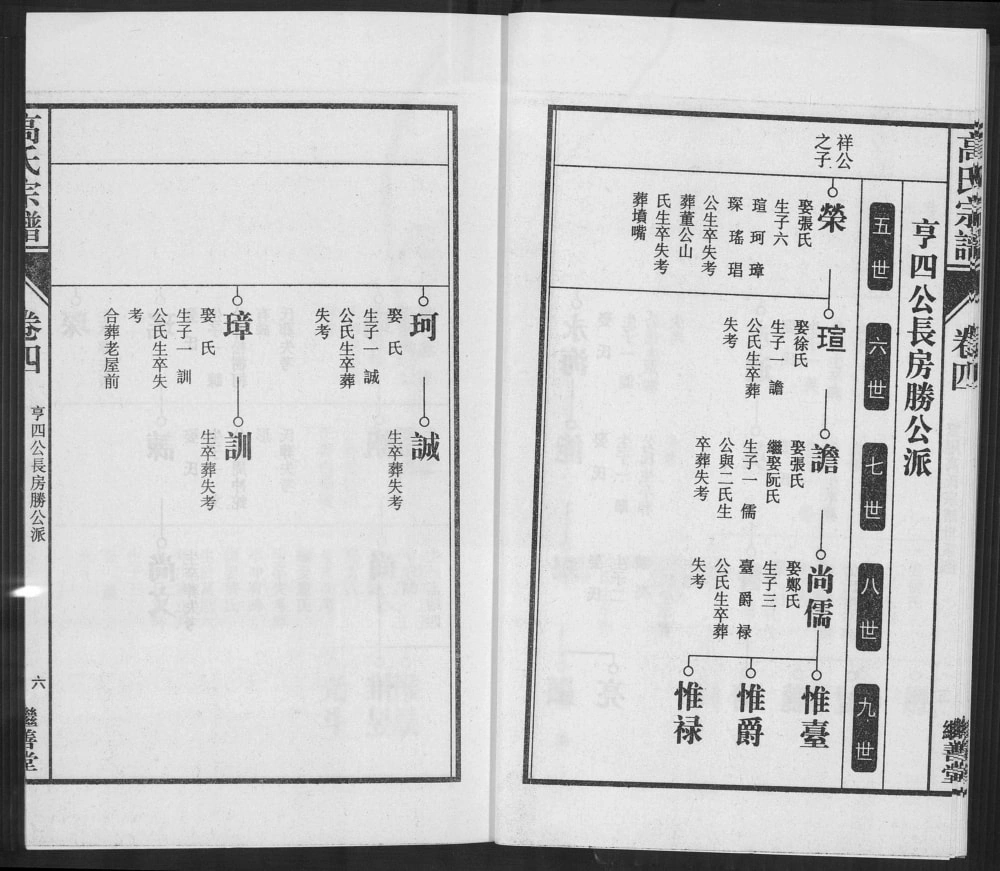 高氏宗譜
卷四
繼善堂
亨四公長房勝公派
五世
六世
七世
八世
九世
祥公
之子
榮
娶張氏
生子六
瑄珂璋
琛瑤琩
公生卒失考
葬董公山
氏生卒失考
葬墳嘴
瑄
娶徐氏
生子一 譫
公氏生卒葬
失考
譫
娶張氏
繼娶阮氏
生子一 儒
公與二氏生
卒葬失考
尚儒
娶鄭氏
生子三
臺爵禄
公氏生卒葬
失考
惟臺
惟爵
惟禄
珂
娶 氏
生子一 誠
公氏生卒葬
失考
誠
生卒葬失考
璋
娶 氏
生子一 訓
公氏生卒失
考
合葬老屋前
訓
生卒葬失考
高氏宗譜
卷四
亨四公長房勝公派
六
繼善堂